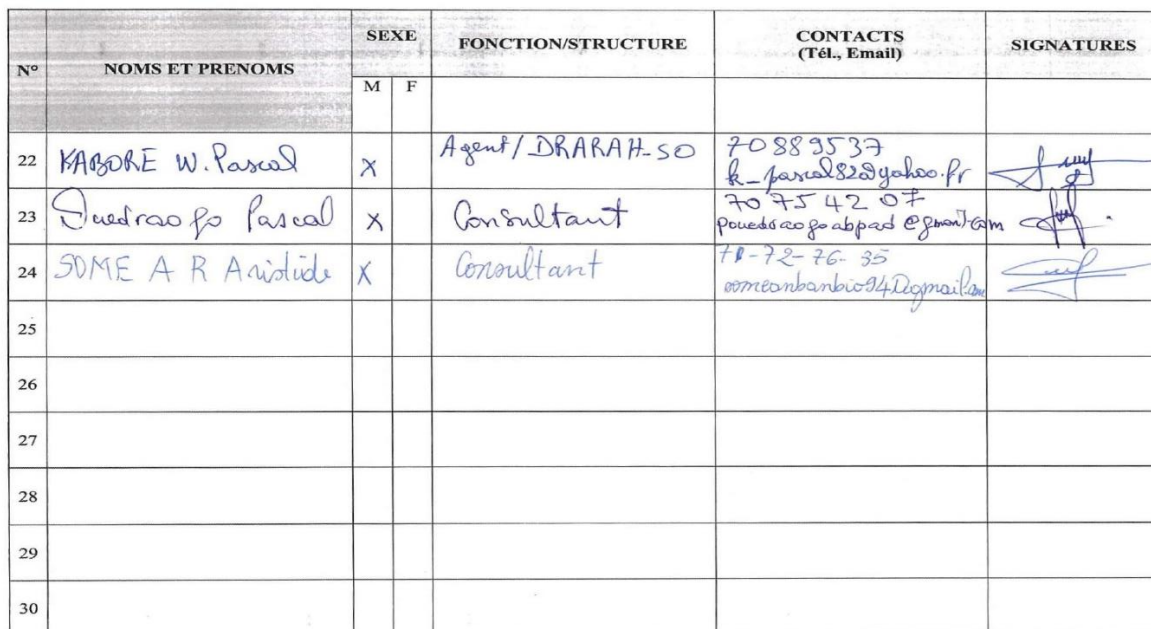 N° NOMS ET PRENOMS SEXE FONCTION/STRUCTURE CONTACTS SIGNATURES
(Tél., Email)
M F
22 KABORE W. Pascal X Agent/DRARAH-SO 70889537
k_pascal82@yahoo.fr
23 Ouedraogo Pascal X Consultant 70 75 42 07
pouedraogoabpad@gmail.com
24 SOME A R Aristide X Consultant 71-72-76-35
25
26
27
28
29
30